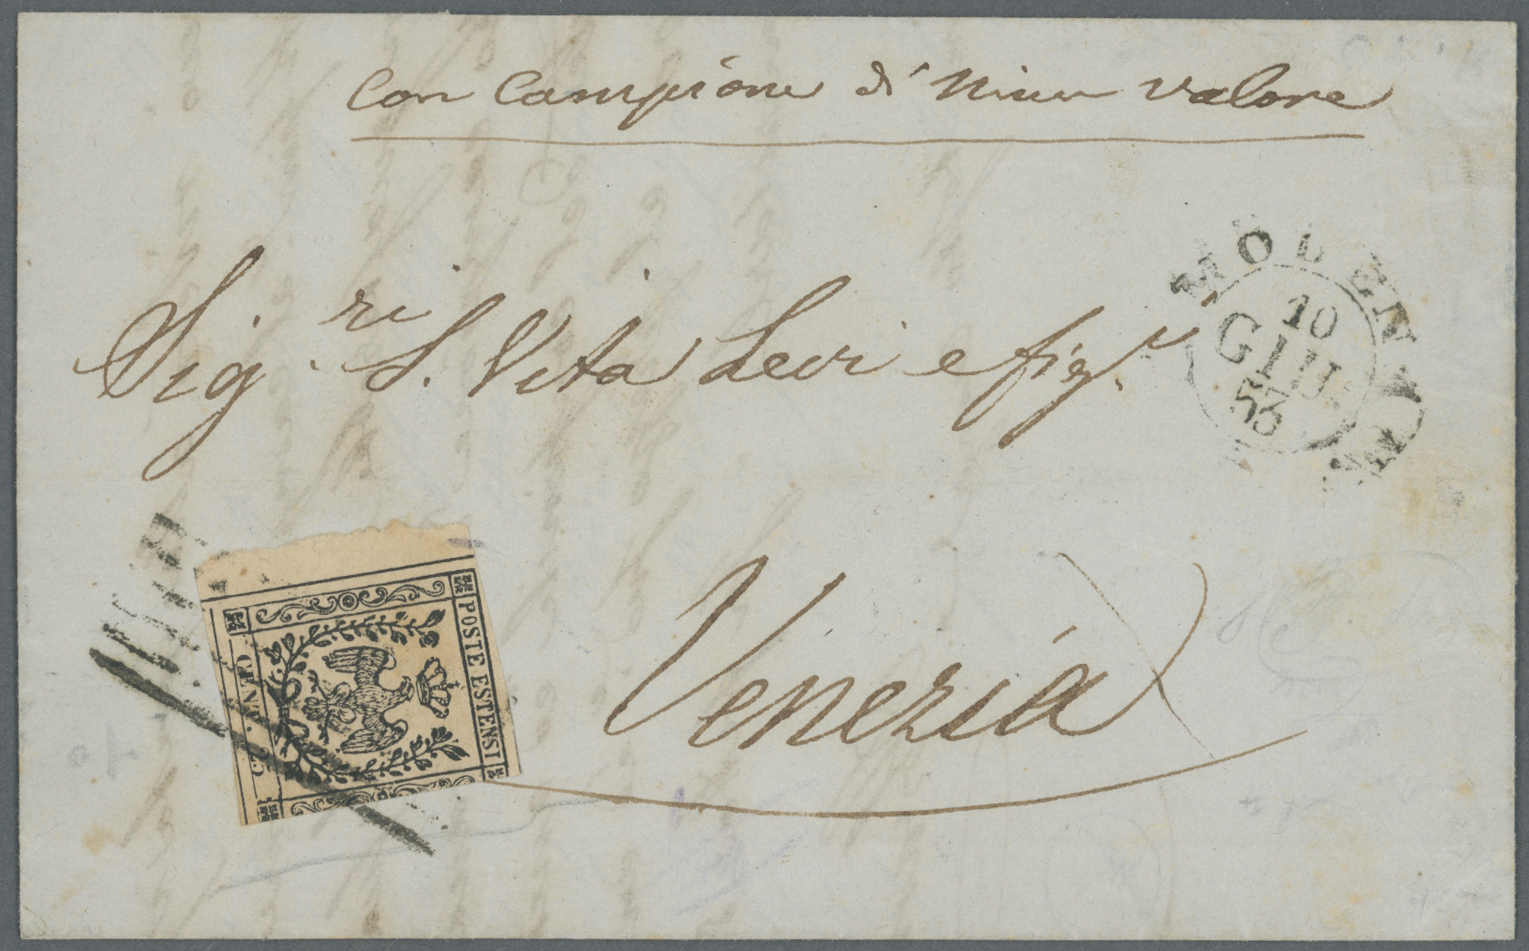 Con Campione di Niun valore
MODENA
10
GIU.
53
Sig.ri S. Vita Levi e fig.
Venezia
POSTE ESTENSI
CENT. 25